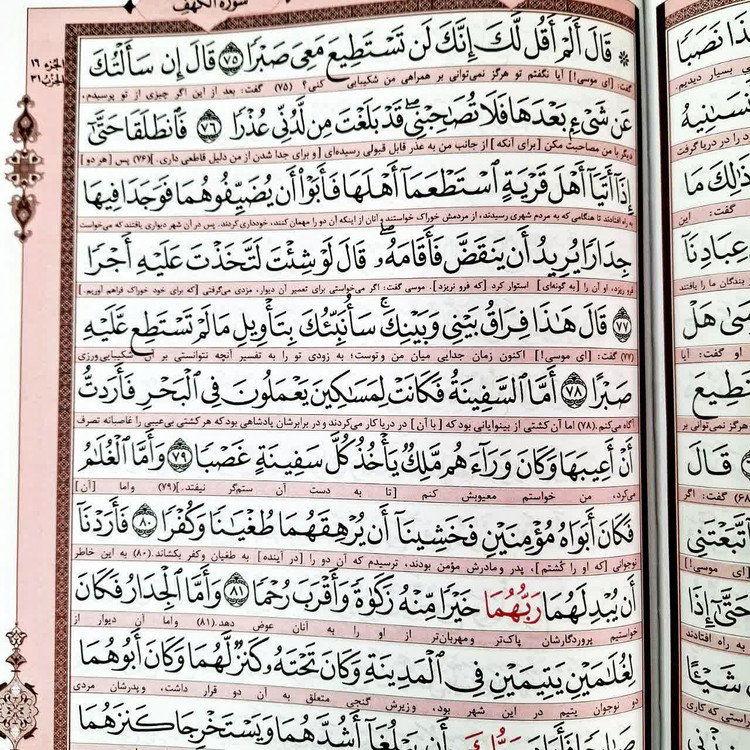 سورة الكهف
الجزء ١٦
الحزب ٣١
قَالَ أَلَمْ أَقُل لَّكَ إِنَّكَ لَن تَسْتَطِيعَ مَعِىَ صَبْرًا ٧٥ قَالَ إِن سَأَلْتُكَ
گفت: [ای موسی!] آیا نگفتم تو هرگز نمی‌توانی بر همراهی من شکیبایی کنی؟ (۷۵) گفت: بعد از این اگر چیزی از تو پرسیدم،
عَن شَىْءٍ بَعْدَهَا فَلَا تُصَـٰحِبْنِى قَدْ بَلَغْتَ مِن لَّدُنِّى عُذْرًا ٧٦ فَٱنطَلَقَا حَتَّىٰٓ
دیگر با من مصاحبت مکن [برای آنکه] از جانب من به عذر قابل قبولی رسیده‌ای [و برای جدا شدن از من دلیل قاطعی داری.](۷۶) پس [هر دو]
إِذَآ أَتَيَآ أَهْلَ قَرْيَةٍ ٱسْتَطْعَمَآ أَهْلَهَا فَأَبَوْا۟ أَن يُضَيِّفُوهُمَا فَوَجَدَا فِيهَا
به راه افتادند تا هنگامی که به مردم شهری رسیدند، از مردمش خوراک خواستند و آنان از اینکه آن دو را مهمان کنند، خودداری کردند. پس در آن شهر دیواری یافتند که می‌خواست
جِدَارًا يُرِيدُ أَن يَنقَضَّ فَأَقَامَهُۥ قَالَ لَوْ شِئْتَ لَتَّخَذْتَ عَلَيْهِ أَجْرًا
فرو ریزد، او آن را [به گونه‌ای] استوار کرد [که فرو نریزد]. موسی گفت: اگر می‌خواستی برای تعمیر آن دیوار، مزدی می‌گرفتی [که برای خود خوراک فراهم آوریم.]
٧٧ قَالَ هَـٰذَا فِرَاقُ بَيْنِى وَبَيْنِكَ سَأُنَبِّئُكَ بِتَأْوِيلِ مَا لَمْ تَسْتَطِع عَّلَيْهِ
(۷۷) گفت: [ای موسی!] اکنون زمان جدایی میان من و توست؛ به زودی تو را به تفسیر آنچه نتوانستی بر آن شکیبایی‌ورزی
صَبْرًا ٧٨ أَمَّا ٱلسَّفِينَةُ فَكَانَتْ لِمَسَـٰكِينَ يَعْمَلُونَ فِى ٱلْبَحْرِ فَأَرَدتُّ
آگاه می‌کنم.(۷۸) اما آن کشتی از بینوایانی بود که [با آن] در دریا کار می‌کردند و در برابرشان پادشاهی بود که هر کشتی بی‌عیبی را غاصبانه تصرف
أَنْ أَعِيبَهَا وَكَانَ وَرَآءَهُم مَّلِكٌ يَأْخُذُ كُلَّ سَفِينَةٍ غَصْبًا ٧٩ وَأَمَّا ٱلْغُلَـٰمُ
می‌کرد، من خواستم معیوبش کنم [تا به دست آن ستم‌گر نیفتد.](۷۹) واما [آن]
فَكَانَ أَبَوَاهُ مُؤْمِنَيْنِ فَخَشِينَآ أَن يُرْهِقَهُمَا طُغْيَـٰنًا وَكُفْرًا ٨٠ فَأَرَدْنَآ
نوجوانی [که او را کُشتم]، پدر و مادرش مؤمن بودند، ترسیدم که آن دو را [در آینده] به طغیان وکفر بکشاند.(۸۰) به این خاطر
أَن يُبْدِلَهُمَا رَبُّهُمَا خَيْرًا مِّنْهُ زَكَوٰةً وَأَقْرَبَ رُحْمًا ٨١ وَأَمَّا ٱلْجِدَارُ فَكَانَ
خواستیم پروردگارشان پاک‌تر و مهربان‌تر از او را به آنان عوض دهد.(۸۱) واما آن دیوار از
لِغُلَـٰمَيْنِ يَتِيمَيْنِ فِى ٱلْمَدِينَةِ وَكَانَ تَحْتَهُۥ كَنزٌ لَّهُمَا وَكَانَ أَبُوهُمَا
دو نوجوان یتیم در این شهر بود، و زیرش گنجی متعلق به آن دو قرار داشت، و پدرشان مردی
أَن يَبْلُغَآ أَشُدَّهُمَا وَيَسْتَخْرِجَا كَنزَهُمَا